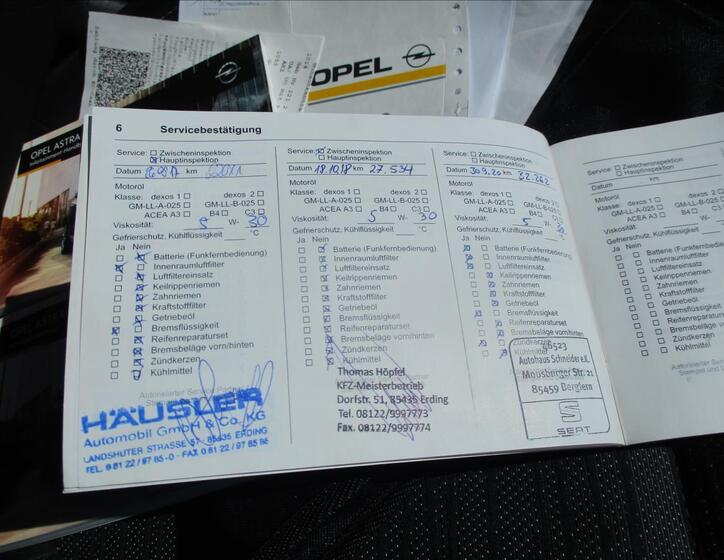 OPEL
OPEL ASTRA
6 Servicebestätigung
Service: Zwischeninspektion
Hauptinspektion
Datum km
Motoröl
Klasse: dexos 1 dexos 2
GM-LL-A-025 GM-LL-B-025
ACEA A3 B4 C3
Viskosität: 5 W- 30
Gefrierschutz, Kühlflüssigkeit °C
Ja Nein
Batterie (Funkfernbedienung)
Innenraumluftfilter
Luftfiltereinsatz
Keilrippenriemen
Zahnriemen
Kraftstofffilter
Getriebeöl
Bremsflüssigkeit
Reifenreparaturset
Bremsbeläge vorn/hinten
Zündkerzen
Kühlmittel
Autorisierter Service Partner
HÄUSLER
Automobil GmbH & Co. KG
LANDSHUTER STRASSE 57 · 85435 ERDING
TEL. 0 81 22 / 97 85-0 · FAX 0 81 22 / 97 85 85
Service: Zwischeninspektion
Hauptinspektion
Datum 18.10.18 km 27.534
Motoröl
Klasse: dexos 1 dexos 2
GM-LL-A-025 GM-LL-B-025
ACEA A3 B4 C3
Viskosität: 5 W- 30
Gefrierschutz, Kühlflüssigkeit °C
Ja Nein
Batterie (Funkfernbedienung)
Innenraumluftfilter
Luftfiltereinsatz
Keilrippenriemen
Zahnriemen
Kraftstofffilter
Getriebeöl
Bremsflüssigkeit
Reifenreparaturset
Bremsbeläge vorn/hinten
Zündkerzen
Kühlmittel
Thomas Höpfel
KFZ-Meisterbetrieb
Dorfstr. 51, 85435 Erding
Tel. 08122/9997773
Fax. 08122/9997774
Service: Zwischeninspektion
Hauptinspektion
Datum 30.9.20 km 32.262
Motoröl
Klasse: dexos 1 dexos 2
GM-LL-A-025 GM-LL-B-025
ACEA A3 B4 C3
Viskosität: 5 W- 30
Gefrierschutz, Kühlflüssigkeit °C
Ja Nein
Batterie (Funkfernbedienung)
Innenraumluftfilter
Luftfiltereinsatz
Keilrippenriemen
Zahnriemen
Kraftstofffilter
Getriebeöl
Bremsflüssigkeit
Reifenreparaturset
Bremsbeläge vorn/hinten
Zündkerzen
Kühlmittel
Autohaus Schneider e.K.
Moosburger Str. 21
85459 Berglern
SEAT
Service: Zwischeninspektion
Hauptinspektion
Datum km
Motoröl
Klasse: dexos 1
GM-LL-A-025
ACEA A3
Viskosität:
Gefrierschutz, Kühlflüssig
Ja Nein
Batterie (Funkfer
Innenraumluftfilt
Luftfiltereinsatz
Keilrippenriemen
Zahnriemen
Kraftstofffilter
Getriebeöl
Bremsflüssigkeit
Reifenreparaturs
Bremsbeläge vo
Zündkerzen
Kühlmittel